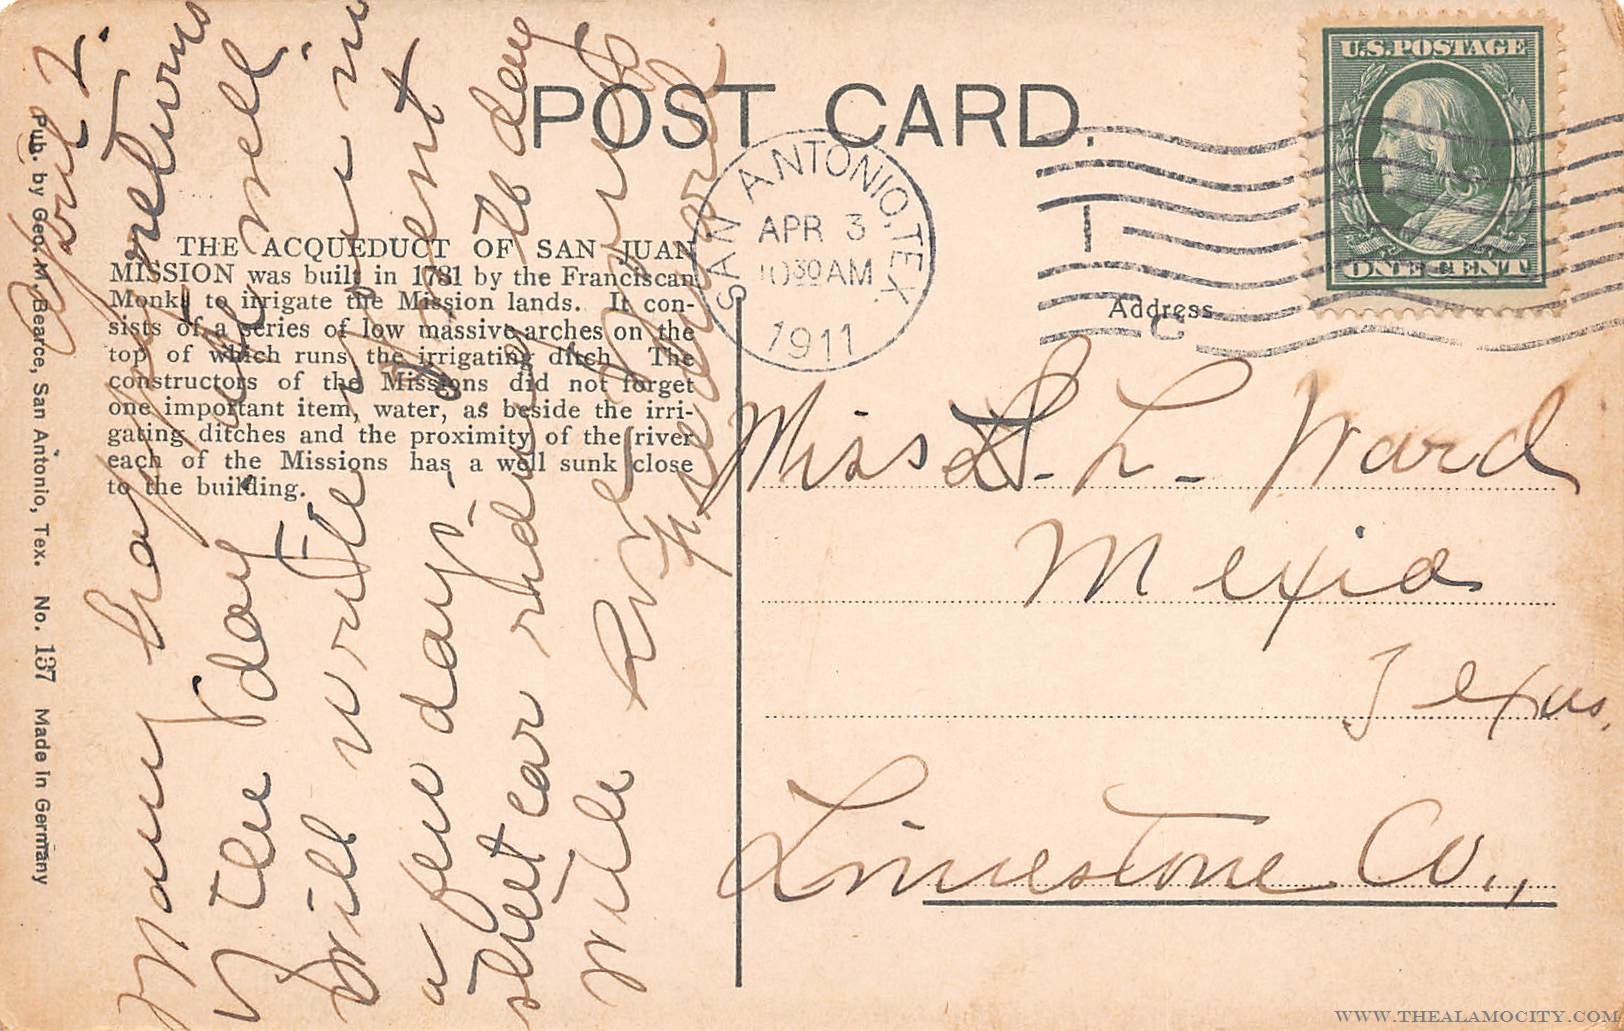 POST CARD.
U.S. POSTAGE
ONE CENT
SAN ANTONIO, TEX.
APR 3
10 30 AM
1911
Address
Miss L. Ward
Mexia
Texas.
Limestone Co.,
THE ACQUEDUCT OF SAN JUAN
MISSION was built in 1781 by the Franciscan
Monks to irrigate the Mission lands. It con-
sists of a series of low massive arches on the
top of which runs the irrigating ditch. The
constructors of the Missions did not forget
one important item, water, as beside the irri-
gating ditches and the proximity of the river
each of the Missions has a well sunk close
to the building.
Pub. by Geo. M. Bearce, San Antonio, Tex. No. 137 Made in Germany
April 2.
Many happy returns
the day
will write you in
a few days.
street car riding all day
with
WWW.THEALAMOCITY.COM